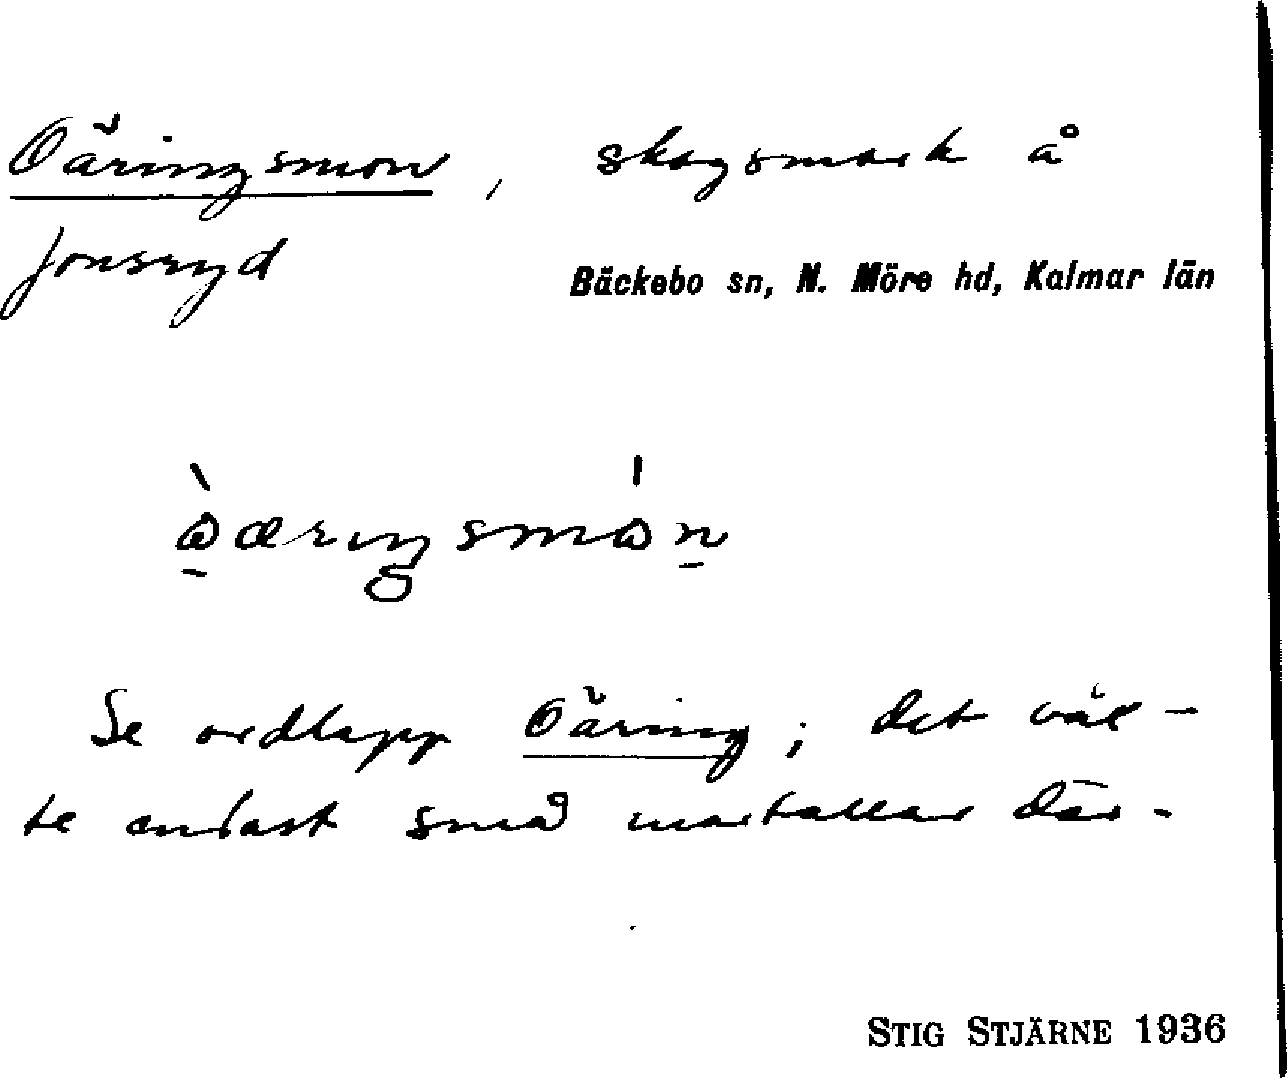 Oäringsmon, skogsmark å
Jonsryd
Bäckebo sn, N. Möre hd, Kalmar län
Se ordlapp Oäring; det väx-
te endast små martallar där.
STIG STJÄRNE 1936